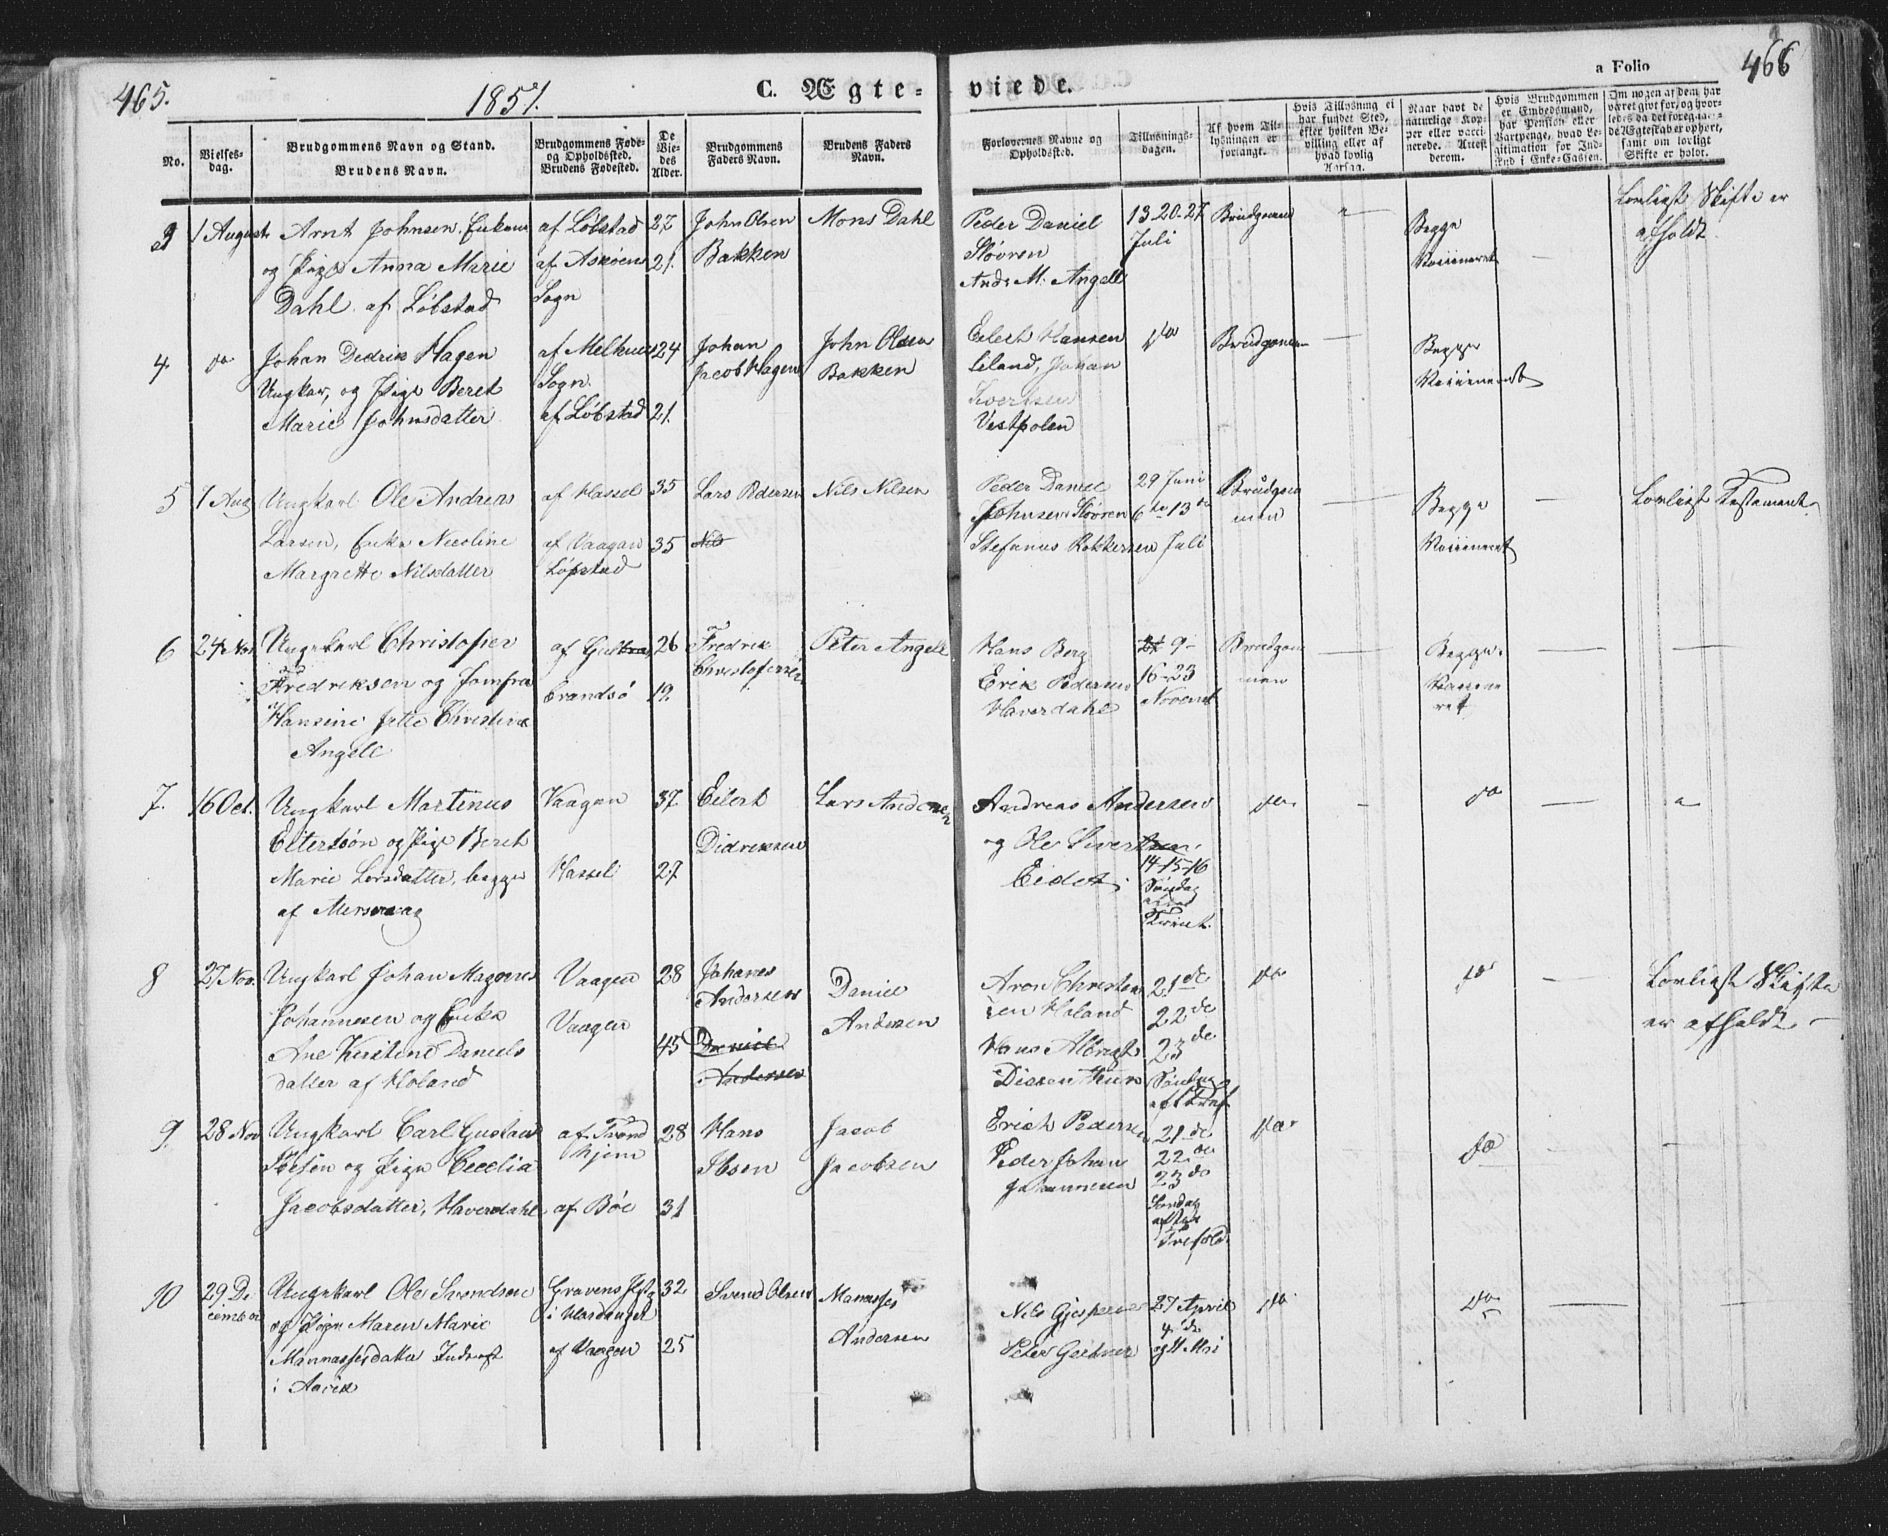 465.
1851.
C. Ægte-
viede.
a Folio
466
No.
Vielses-
dag.
Brudgommens Navn og Stand.
Brudens Navn.
Brudgommens Føde-
og Opholdssted.
Brudens Fødested.
De
Vie-
des
Alder.
Brudgommens
Faders Navn.
Brudens Faders
Navn.
Forlovernes Navne og
Opholdssted.
Tillysnings-
dagen.
Af hvem Til-
lysningen er
forlangt.
Hvis Tillysning ei
har fundet Sted,
efter hvilken Be-
villing eller af
hvad lovlig
Aarsag.
Naar havt de
naturlige Kop-
per eller vacci-
nerede. Attest
derom.
Hvis Brudgommen
er Embedsmand,
har Pension eller
Vartpenge, hvad Le-
gitimation for Ind-
skud i Enke-Cassen.
Om nogen af dem har
været givt før, og hvor-
ledes da det foregaaen-
de Ægteskab er ophørt,
samt om lovligt
Skifte er holdt.
3
1 August
Arnt Johnsen, Enkem
og Pige Anna Marie
Dahl af Løbstad
af Løbstad
af Askøens
Sogn
27
21.
John Olsen
Bakken
Mons Dahl
Peder Daniel
Støvren
Ands M. Angell
13-20-27
Juli
Brudgomen
Begge
Vaccineret
Lovligt Skifte er
afholdt.
4.
do
Johan Dedrik Hagen
Ungkar, og Pige Beret
Marie Johnsdatter
af Melhuus
Sogn
af Løbstad
24
21.
Johan
Jacob Hagen
John Olsen
Bakken
Eilert Hansen
Eiland, Johan
Sivertsen
Vestpolen
do
Brudgomen
Begge
Vaccineret
5
1 Aug
Ungkarl Ole Andreas
Larsen, Enke Nicoline
Margrette Nilsdatter
af Hassel
af Vaagan
Løpstad
35
35
Lars Pedersen
Nils
Nils Nilsen
Peder Daniel
Johnsen Støvren
Stefanus Rokkersen
29 Juni
6te 13de
Juli
Brudgom
men
Begge
Vaccineret
Lovligt Testament
6
24 Nov
Ungekarl Christofer
Fredriksen og Jomfru
Hansine Jette Christine
Angell
Brandsø
26
19
Fredrik
Christofersen
Peter Angell
Hans Berg
Erik Pedersen
Haverdahl
9-
16-23
Novemb
Brudgom
men
Begge
Vaccine
ret
7.
16 Oct.
Ungkarl Martinus
Eilertsøn og Pige Beret
Marie Larsdatter, begge
af
Vaagan
Hassel
37
27
Eilert
Didriksen
Lars Andersen
Andreas Andersen
og Ole Sivertsen,
Eidet.
14-15-16
Søndag
Trinit.
do
do
8
27 Nov.
Ungkarl Johan Magnus
Johannesen og Enke
Ane Kirstine Daniels
datter af Holand
Vaagen
Vaagen
28
45
Johanes
Andersen
Daniel
Andersen
Daniel
Andersen
Aron Christen
sen Holand
Hans Albregt
21de
22de
23de
Søndag
eft. Tref
do
do
Lovligt Skifte
er afholdt.
9.
28 Nov
Ungkarl Carl Gustav
Ibsen og Pige Cecelia
Jacobsdatter, Haverdahl
af Trond
hjem
af Bøe
28
31
Hans
Ibsen
Jacob
Jacobsen
Erich Pedersen
Peder Johan
Johannesen
21de
22de
23de
Søndag
efter
Trefold.
do
do
10
29 De
cember
Ungekarl Ole Svendsen
og Pige Maren Marie
Mannassesdatter Inders
i Aavik
Gravens Pstg
i Hardanger
af Vaagen
32
25
Svend Olsen
Manasses
Andersen
Nils
Peter
27 April
4de
og 11 Mai
do
do